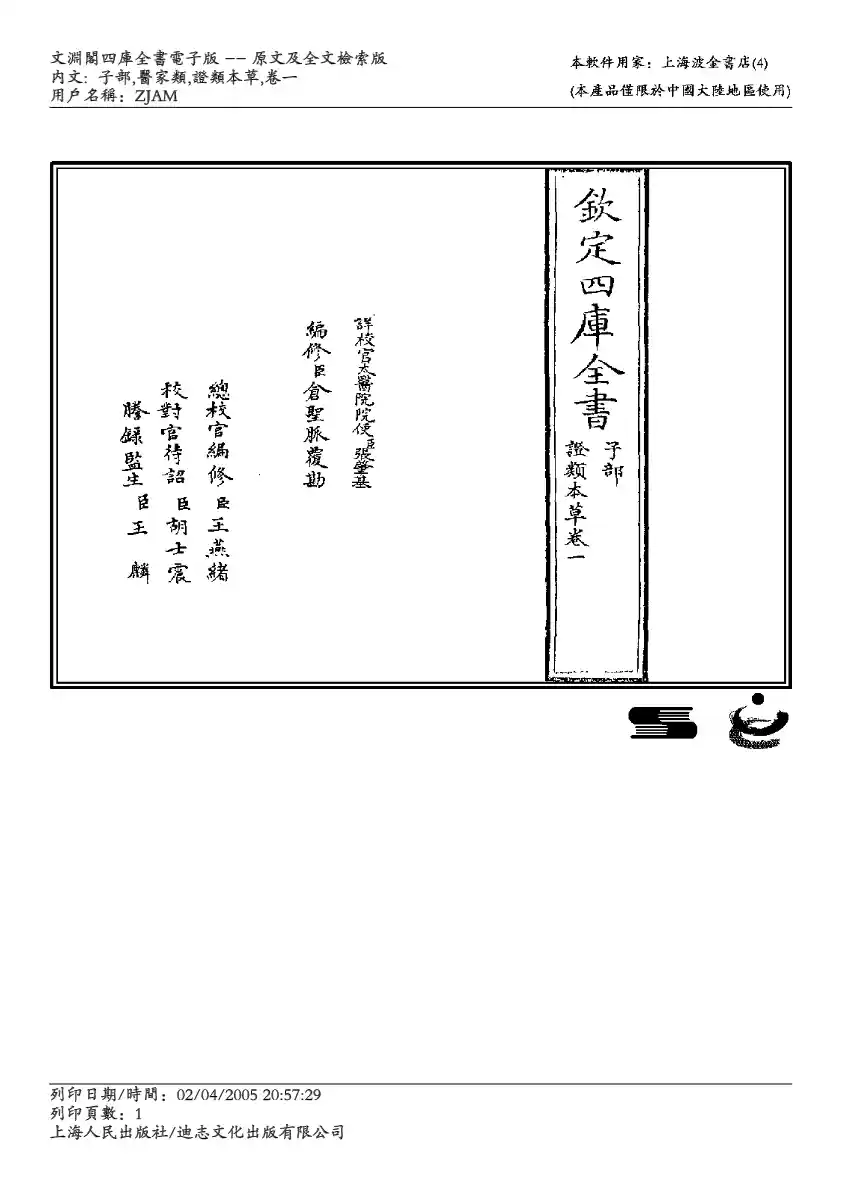 文淵閣四庫全書電子版 −− 原文及全文檢索版
内文: 子部,醫家類,證類本草,卷一
用戶名稱: ZJAM
本軟件用家: 上海波金書店(4)
(本產品僅限於中國大陸地區使用)
欽定四庫全書
子部
證類本草卷一
詳校官太醫院院使臣張肇基
編修臣倉聖脈覆勘
總校官編修臣王燕緒
校對官待詔臣胡士震
謄錄監生臣王麟
列印日期/時間: 02/04/2005 20:57:29
列印頁數: 1
上海人民出版社/迪志文化出版有限公司